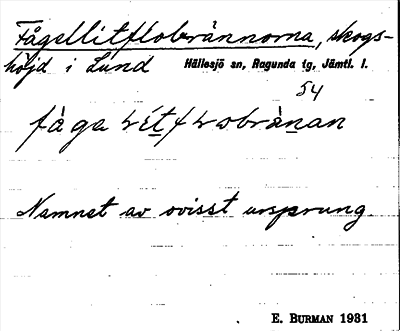 Fågellitflobrännorna, skogs-
höjd i Lund Hällesjö sn, Ragunda tg, Jämtl. l.
54
Namnet av ovisst ursprung.
E. BURMAN 1931